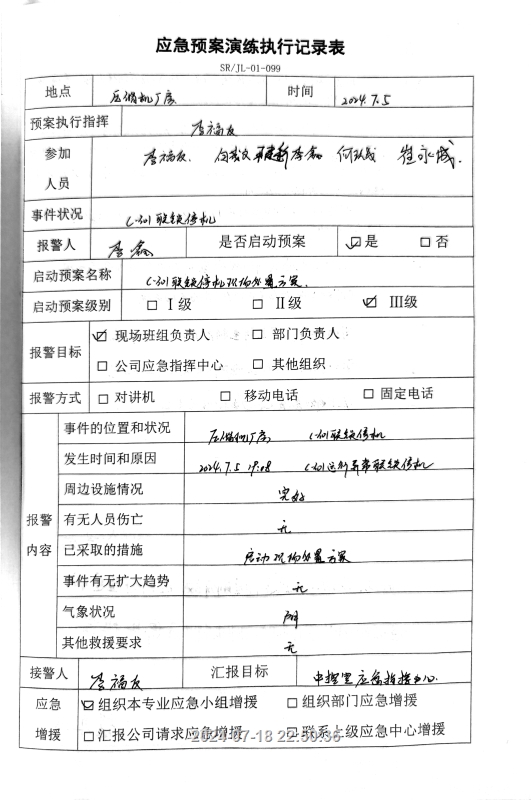 应急预案演练执行记录表
SR/JL-01-099
地点 压缩机厂房 时间 2024.7.5
预案执行指挥 李福友
参加人员 李福友. 李鑫 崔永成.
事件状况 C-301联锁停机
报警人 李鑫 是否启动预案 ☑是 □否
启动预案名称 C-301联锁停机现场处置方案.
启动预案级别 □Ⅰ级 □Ⅱ级 ☑Ⅲ级
报警目标 ☑现场班组负责人 □部门负责人
□公司应急指挥中心 □其他组织
报警方式 □对讲机 □移动电话 □固定电话
报警内容
事件的位置和状况 压缩机厂房 C-301联锁停机
发生时间和原因 2024.7.5 C-301运行异常联锁停机
周边设施情况 完好
有无人员伤亡 无
已采取的措施 启动现场处置方案
事件有无扩大趋势 无
气象状况 阴
其他救援要求 无
接警人 李福友 汇报目标 中控室应急指挥中心.
应急增援 ☑组织本专业应急小组增援 □组织部门应急增援
□汇报公司请求应急增援 □联系上级应急中心增援
2024-07-18 22:50:35